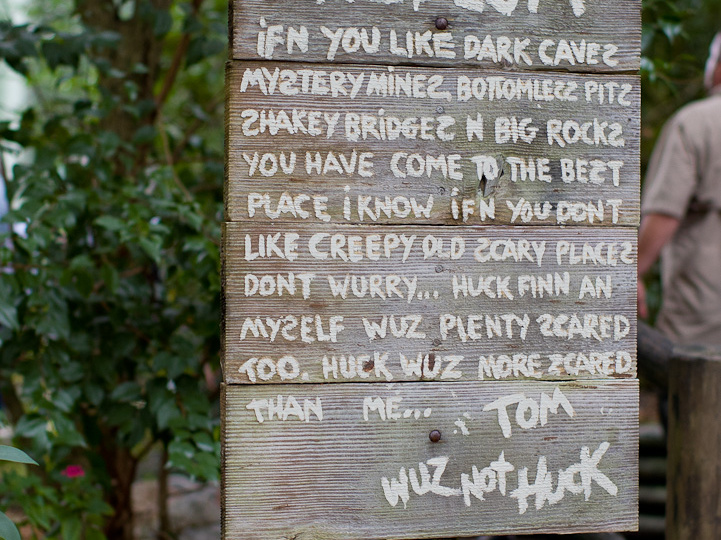 iFN YOU LIKE DARK CAVES
MYSTERY MiNES, BOTTOMLESS PiTS
SHAKEY BRiDGES N BIG ROCKS
YOU HAVE COME TO THE BEST
PLACE i KNOW iFN YOU DON'T
LIKE CREEPY OLD SCARY PLACES
DONT WURRY... HUCK FINN AN
MYSELF WUZ PLENTY SCARED
TOO. HUCK WUZ MORE SCARED
THAN ME... TOM
WUZ NOT HUCK